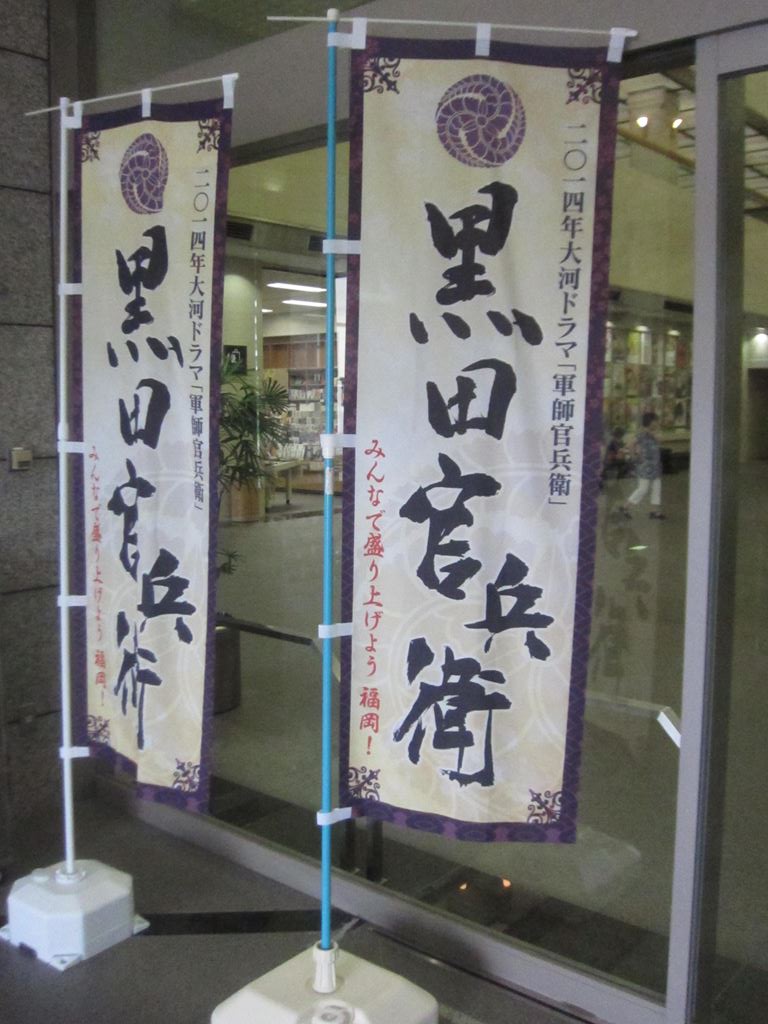 二〇一四年大河ドラマ「軍師官兵衛」
黒田官兵衛
みんなで盛り上げよう 福岡!
二〇一四年大河ドラマ「軍師官兵衛」
黒田官兵衛
みんなで盛り上げよう 福岡!